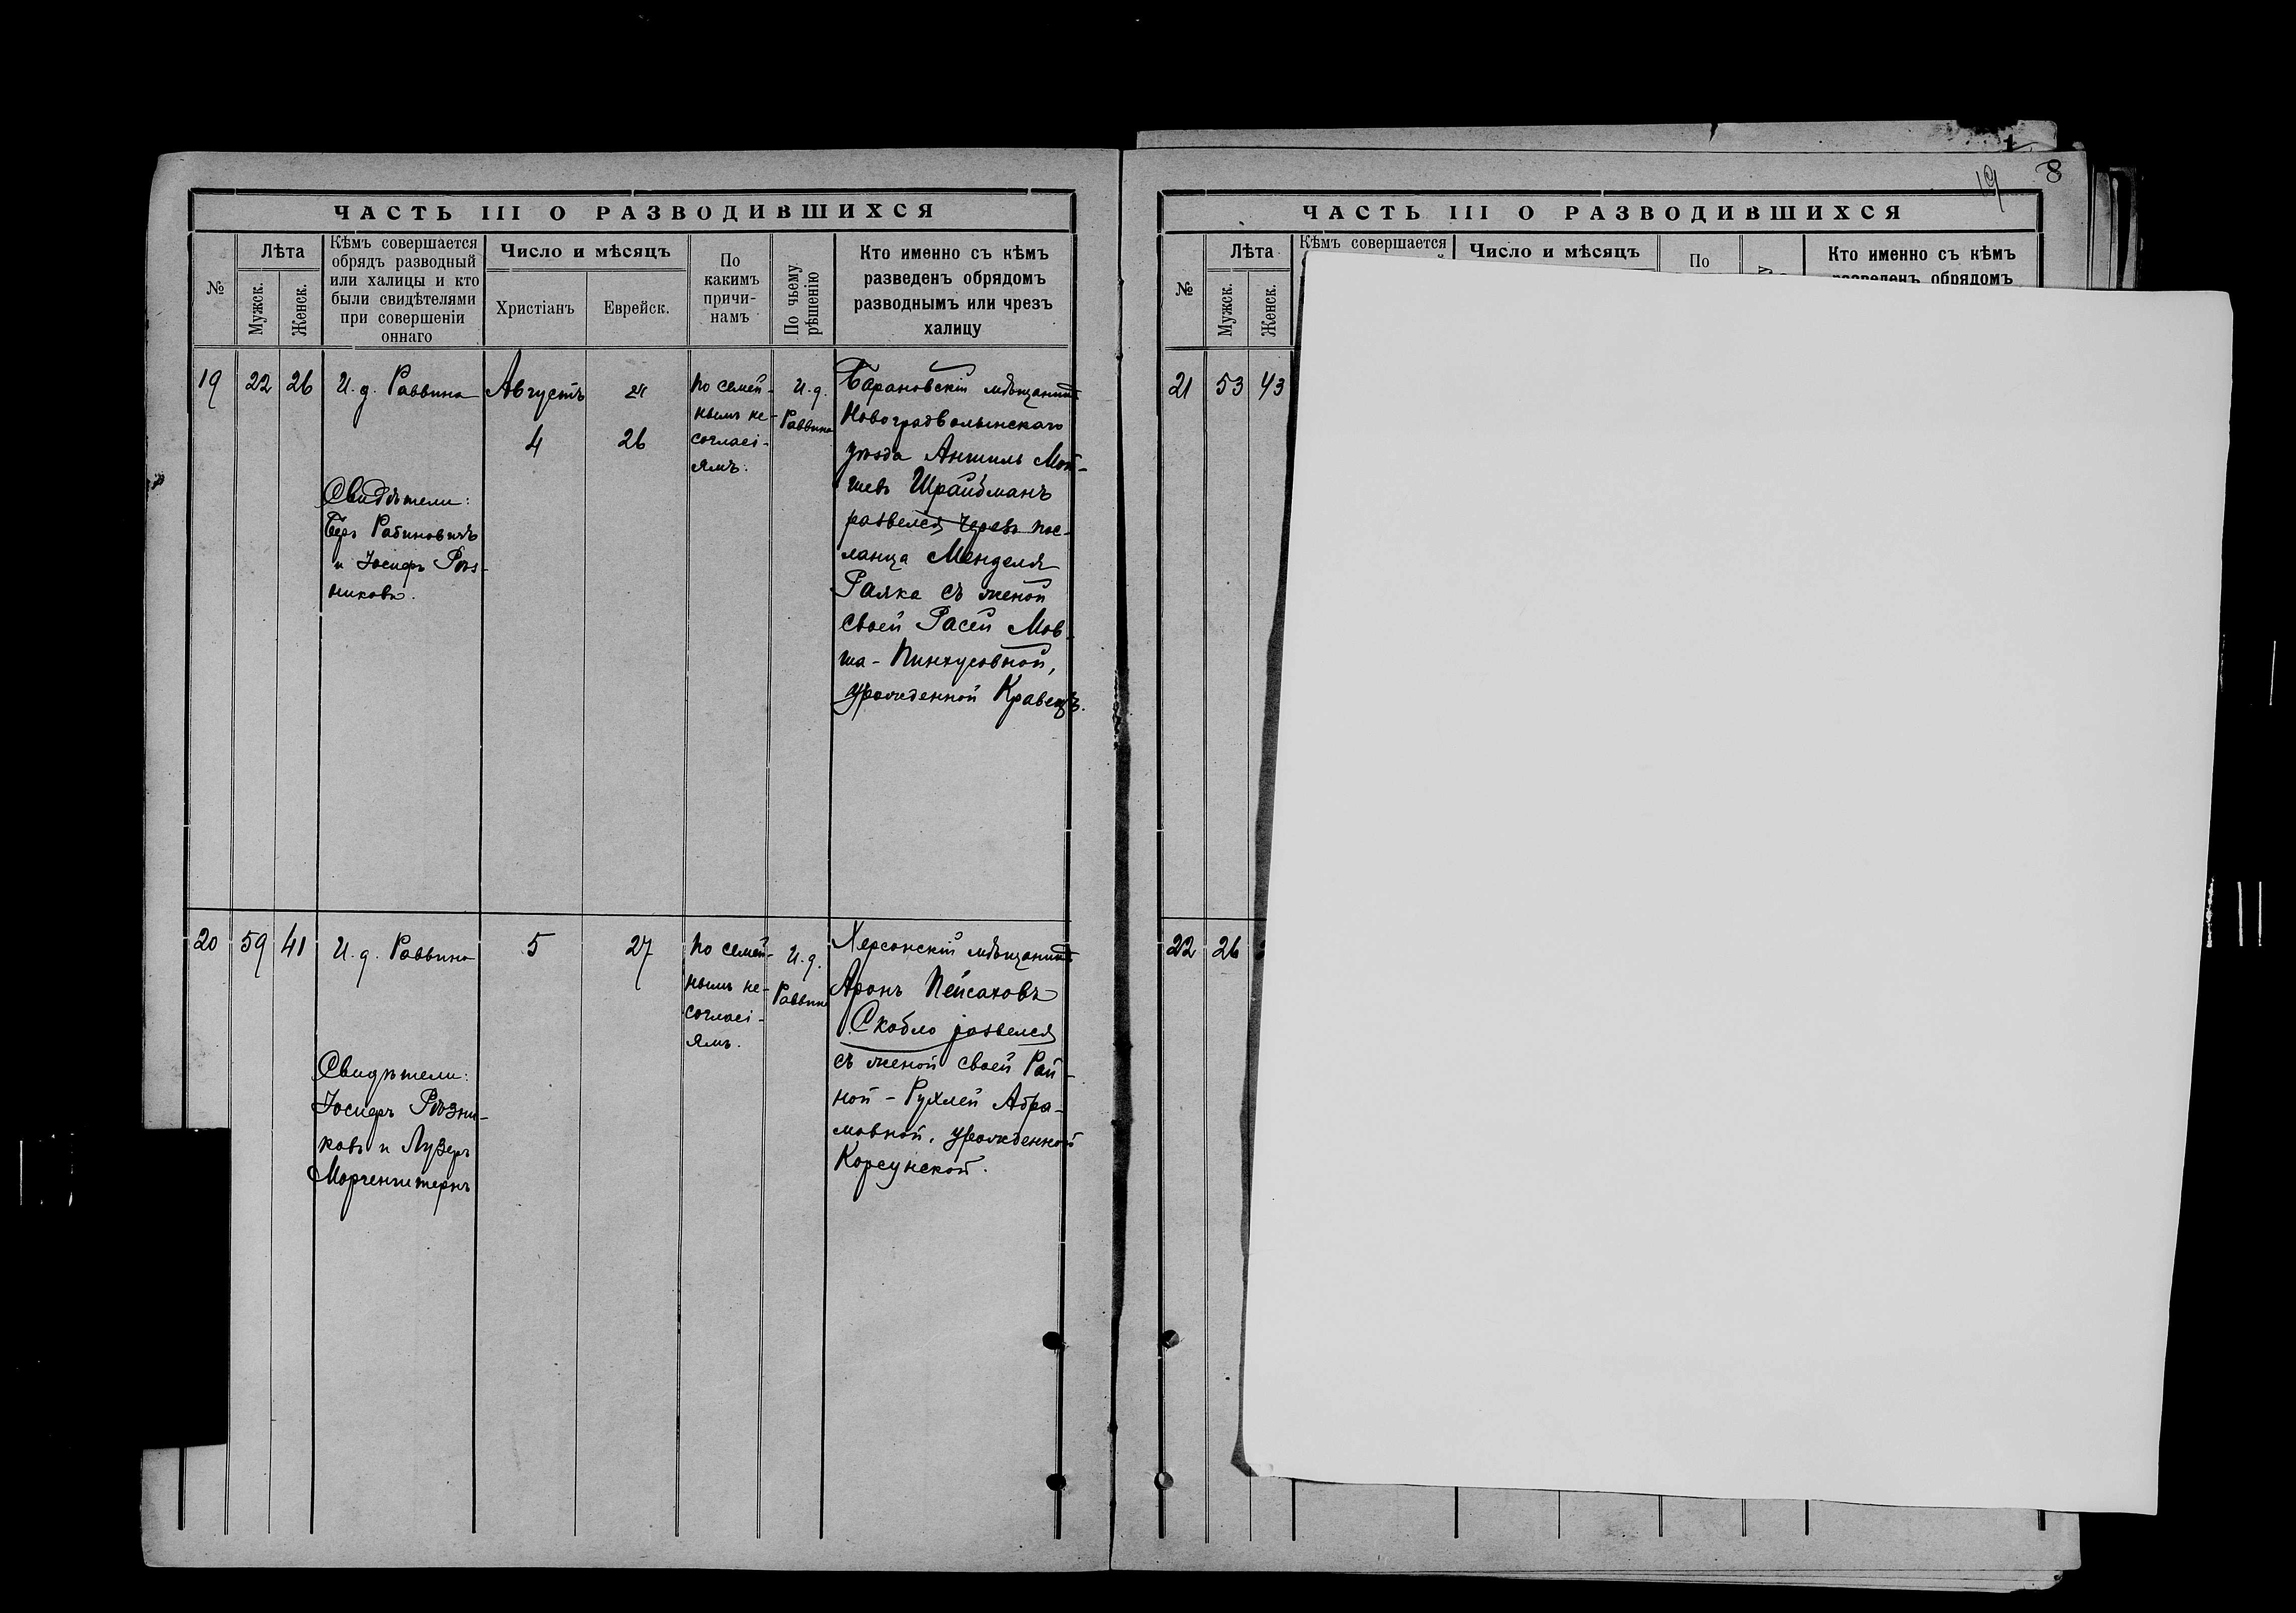 ЧАСТЬ III О РАЗВОДИВШИХСЯ
№
Лѣта
Мужск.
Женск.
Кѣмъ совершается
обрядъ разводный
или халицы и кто
были свидѣтелями
при совершеніи
оннаго
Число и мѣсяцъ
Христіанъ
Еврейск.
По
какимъ
причи-
намъ
По чьему
рѣшенію
Кто именно съ кѣмъ
разведенъ обрядомъ
разводнымъ или чрезъ
халицу
19
22
26
И. д. Раввина
Свидѣтели:
Беръ Рабиновичъ
и Іосифъ Рѣз-
никовъ.
Августъ
4
26
по семей-
нымъ не-
согласі-
ямъ.
И. д.
Раввина
Барановскій мѣщанинъ
Новоградволынскаго
уѣзда Аншиль Мош-
шевъ Шрайбманъ
развелся черезъ пос-
ланца Менделя
Раяка съ женой
своей Расей Мов-
ша-Пинхусовной,
урожденной Кравецъ.
20
59
41
И. д. Раввина
Свидѣтели:
Іосифъ Рѣзни-
ковъ и Лузеръ
Моргенштернъ
5
27
по семей-
нымъ не-
согласі-
ямъ.
И. д.
Раввина
Херсонскій мѣщанинъ
Аронъ Пейсаховъ
Скобло развелся
съ женой своей Рай-
ной-Рухлей Абра-
мовной, урожденной
Корсунской.
19
8
ЧАСТЬ III О РАЗВОДИВШИХСЯ
№
Лѣта
Мужск.
Женск.
Кѣмъ совершается
Число и мѣсяцъ
По
Кто именно съ кѣмъ
разведенъ обрядомъ
21
53
43
22
26